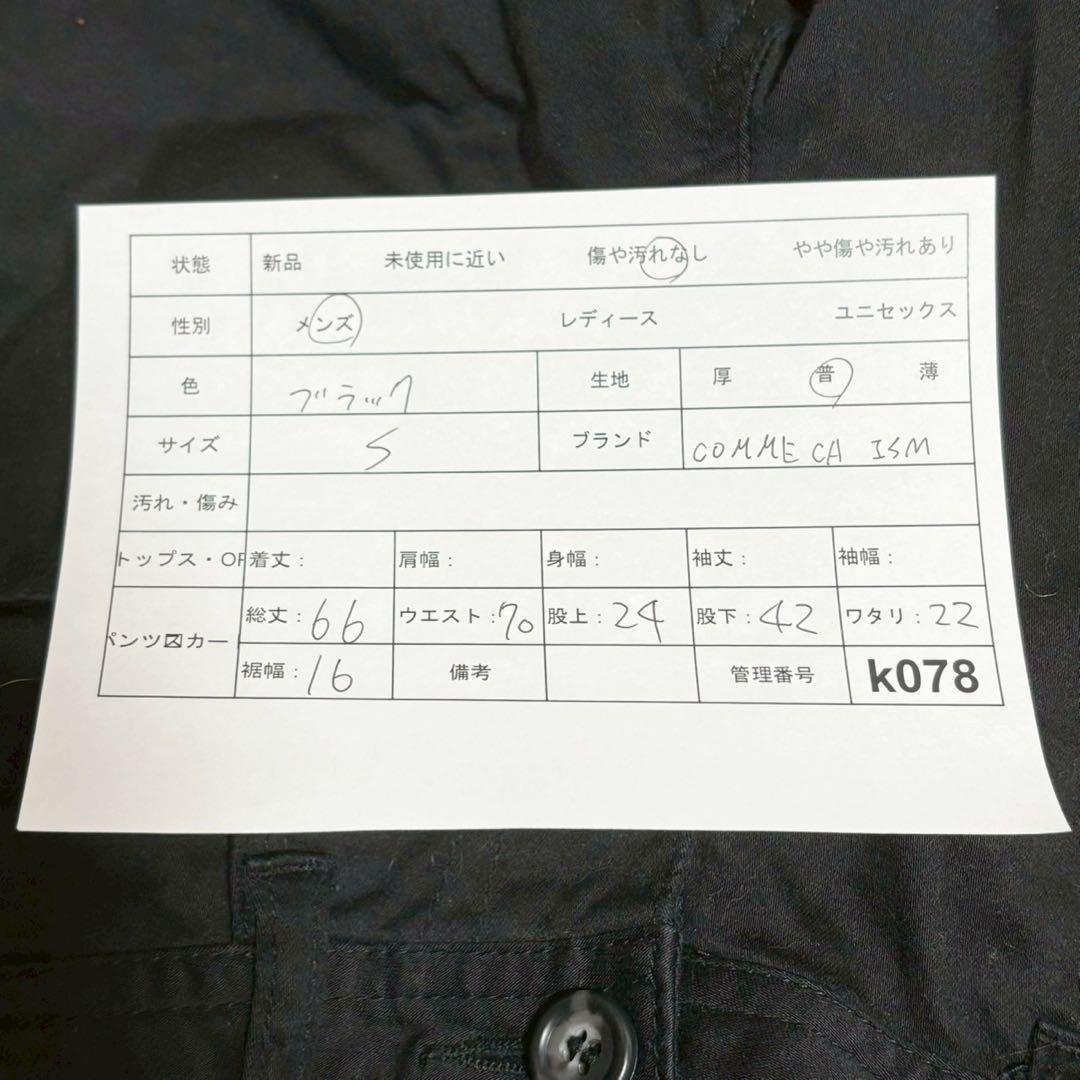 状態 新品 未使用に近い 傷や汚れなし やや傷や汚れあり
性別 メンズ レディース ユニセックス
色 ブラック 生地 厚 普 薄
サイズ S ブランド COMME CA ISM
汚れ・傷み
トップス・OF 着丈： 肩幅： 身幅： 袖丈： 袖幅：
パンツ〼カー 総丈：66 ウエスト：70 股上：24 股下：42 ワタリ：22
裾幅：16 備考 管理番号 k078